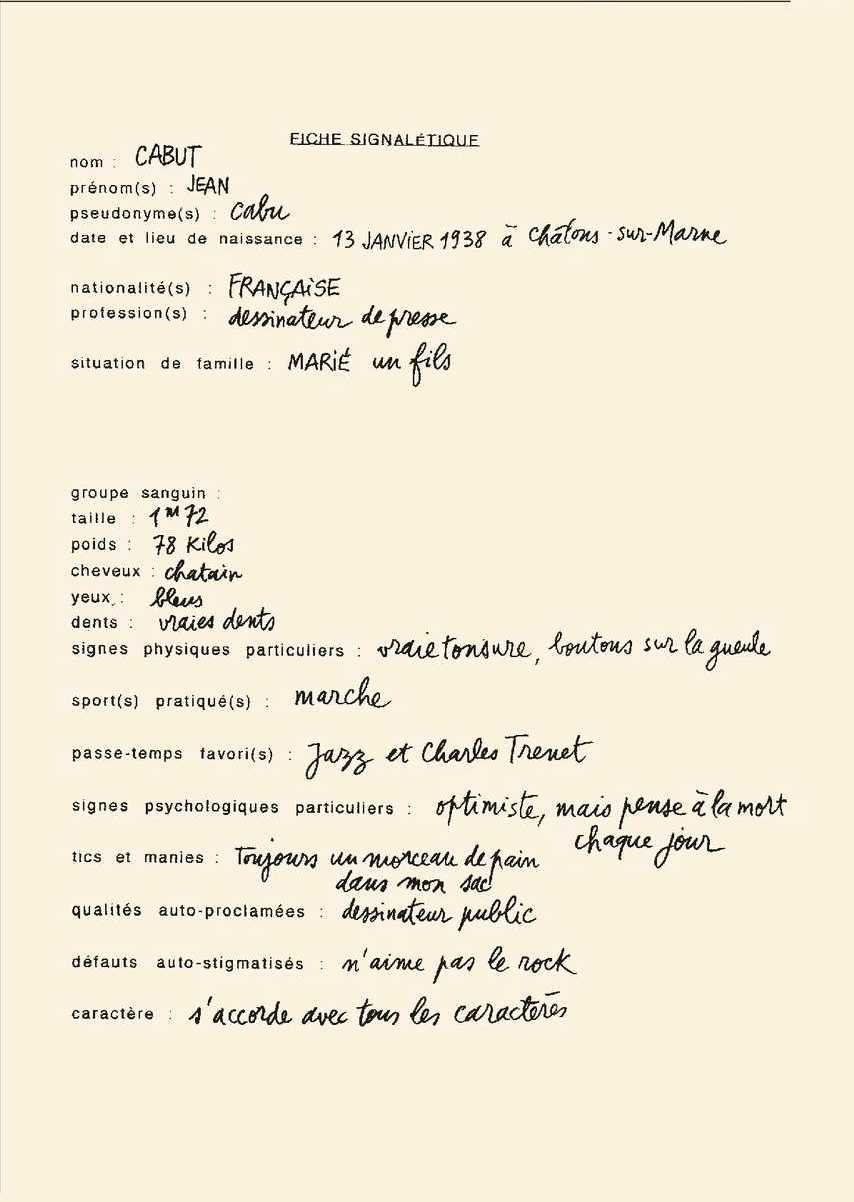 FICHE SIGNALÉTIQUE
nom : CABUT
prénom(s) : JEAN
pseudonyme(s) : cabu
date et lieu de naissance : 13 JANVIER 1938 à Châlons-sur-Marne
nationalité(s) : FRANÇAISE
profession(s) : dessinateur de presse
situation de famille : MARIÉ un fils
groupe sanguin :
taille : 1m72
poids : 78 Kilos
cheveux : chatain
yeux : bleus
dents : vraies dents
signes physiques particuliers : vraie tonsure, boutons sur la gueule
sport(s) pratiqué(s) : marche
passe-temps favori(s) : Jazz et Charles Trenet
signes psychologiques particuliers : optimiste, mais pense à la mort
chaque jour
tics et manies : Toujours un morceau de pain
dans mon sac
qualités auto-proclamées : dessinateur public
défauts auto-stigmatisés : n'aime pas le rock
caractère : s'accorde avec tous les caractères